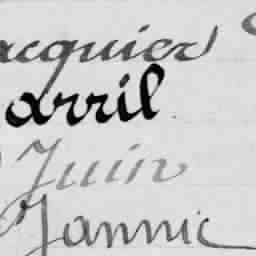 acquier
arril
Juin
Jannic